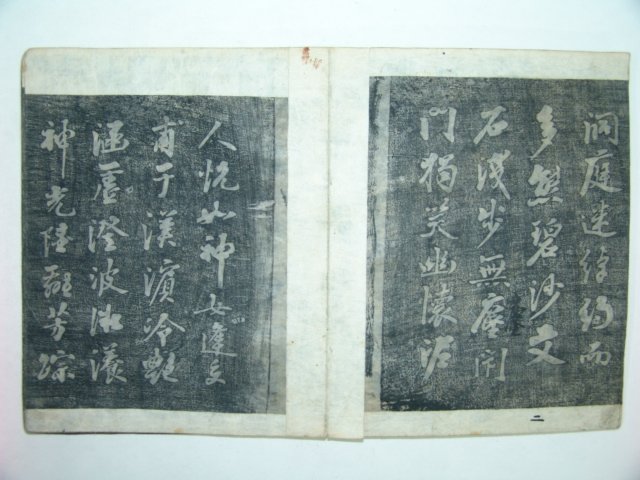 洞庭迷綽約而
多態碧沙文
石淺步無塵
門獨笑幽懷
二
人恍如神女逢交
甫于漢濱冷艷
涵虛澄波微漾
神光陸離芳踪